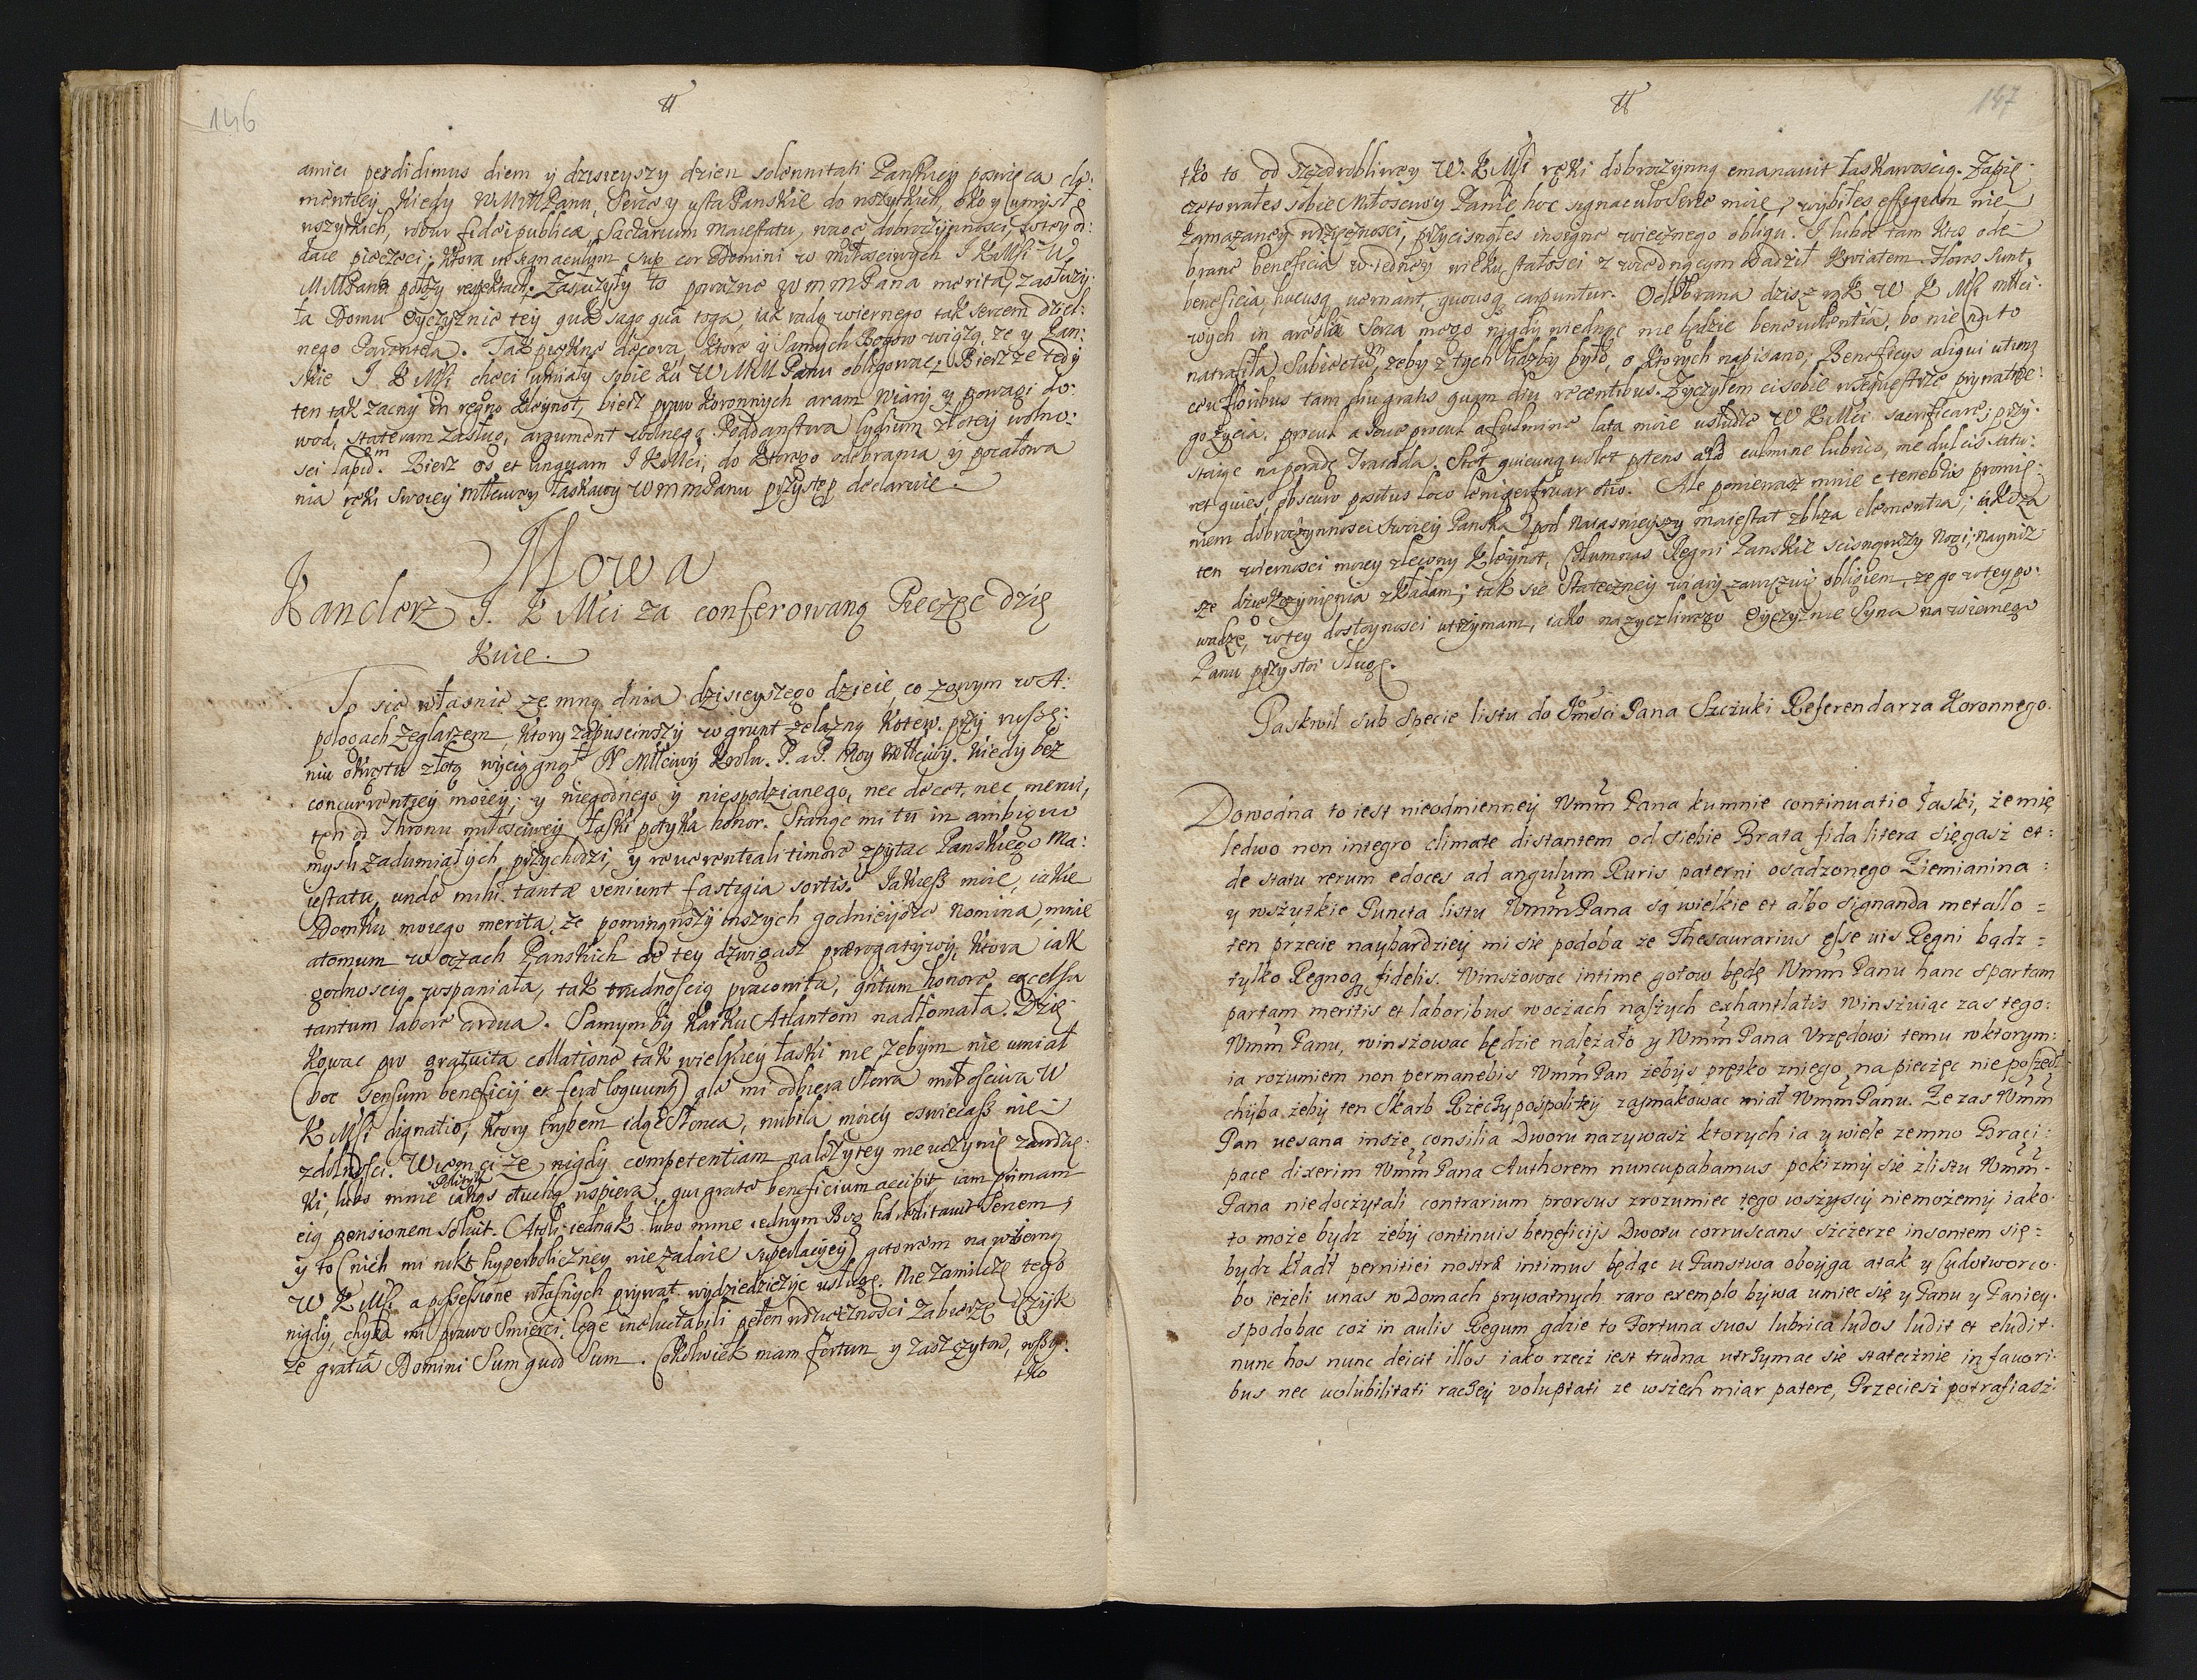 146
amici perdidimus diem y dzisieyszy dzien solennitati Panskiey poswięca cle:
mentiey kiedy WMMPanu, Serce y usta Panskie do wszytkich, oko y umysł
wszytkich, robur fidei publicae, Sacrarium Maiestatu, dobroczynnosci,
daie pieczęci; ktora in signaculum sup cor Domini w miłosciwych J K Msci W
MMPana respektach. Zasłużyły to poważne WMMPana merita, zasłuży:
ła Domu Oyczyznie tey qua sago qua toga, iak radą wiernego tak sercem dziel:
nego Parentela. Tak piękne decora, ktore y samych Bogow wiążą, ze y Pan:
skie J K Msci checi umiały sobie ku WMMPanu obligowac. Bierz ze tedy
ten tak zacny in regno kleynot, bierz praw koronnych aram wiary y powagi do:
wod, stateram zasług, argument wolnego Poddanstwa lydium złotey wolno:
sci lapidm. Bierz os et linguam J K Msci, do ktorego odebrania y pocałowa
nia ręki swoiey Młsciwey łaskawy WMMPanu przystęp declaruie.
Mowa
Kanclerz J. K Msci za conferowaną Pieczęc dzię
kuie.
To sie własnie ze mną dnia dzisieyszego dzieie co zonym w A:
pologach zeglarzem, ktory zapusciwszy w grunt zelazną kotew. przy rusze:
niu okrętu złotą wyciągnął N Młsciwy Krolu. P. a P. Moy Młsciwy. kiedy bez
concurrentiey moiey; y niegodnego y niespodzianego, nec decet, nec merui,
ten od Thronu miłosciwey łaski potyka honor. Stanąc mi tu in ambiguo
mysli zadumiałych przychodzi, y reverentiali timore zpytac Panskiego Ma:
iestatu, unde mihi tantae veniunt fastigia sortis. Jakiesz mie, iakie
Domku moiego merita, ze pominąwszy inszych godnieysze Nomina, mnie
atomum w oczach Panskich do tey dzwigasz praerogatywy, ktora iak
godnoscią wspaniała, tak trudnoscią pracowita, quantum honore excelsa
tantum labore ardua. Samym by karku Atlantom nadłomała. Dzię
kowac pro gratuita collatione tak wielkiey łaski nie zebym nie umiał
(hoc sensum beneficij et ferae loquuntur) ale mi odbiera słowa miłosciwa W
K Msci dignatio, ktory trybem idąc słonca, nubila moiey oswiecasz nie
zdolnosci. Wiem ci ze nigdy competentiam należytey nie uczynię zawdzię
ki, lubo mnie iakąs otuchą wspiera, qui grate beneficium accipit iam primam
eig pensionem soluit. Atoli iednak lubo mnie iednym Bog haereditavit sercem,
y to (niech mi nikt hyperboliczney nie zadaie superlacyey) gotowem na wierną
W K Msci a possessione własnych prywat wydziedziczyc usługę. Nie zamilczę tego
nigdy, chyba mi prawo smierci lege ineluctabili pełen wdzięcznosci zabierze ięzyk
ze gratia Domini Sum quod Sum. Cokolwiek mam fortun y zaszczytow, wszy:
tko
147
tko to od szczodrobliwey W. K Msci ręki dobroczynną emanavit łaskawoscią. Zapię
czetowałes sobie Miłosciwy Panie hoc signaculo serce moie, wybiłes effigiem nie
zamazaney wdzięcznosci, przycisnąłes insigne wiecznego obligu. I lubo tam ktos ode
brane beneficia w iedney wieku stałosci z więdnącym wadził kwiatem. Flores sunt
beneficia, hucusq vernant, quousq carpuntur. Odebrana dzis z rąk W K Msci młsci
wych in areola serca mego nigdy niednąc nie będzie benevolentia, bo nie na to
natrafiła Subiectum, zeby z tych liczby było, o ktorych napisano; Beneficys aliqui utuntur
ceu floribus tam diu gratis quam diu recentibus. Zyczyłem ci sobie w sequestrze prywatne
go zycia. procul a Iove procul a fulmine lata moie usłudze W K Msci sacrificare; przy
staiąc na poradę Tragoeda. Stet quicunq volet potens aulae culmine lubrico, me dulcis satu:
ret quies, obscuro positus loco leni perfruar otio. Ale poniewasz mnie e tenebris promię
niem dobroczynnosci swoiey Panska pod Naiasnieyszy maiestat zbliza clementia; iak za
ten wiernosci moiey zlecony kleynot, Columnas Regni Panskie scisnąwszy Nogi; nayniz
sze dziękczynienia zkładam; tak sie stateczney wiary zawszuię obligiem, ze go w tey po:
wadze, w tey dostoynosci utrzymam, iako nayzyczliwszego Oyczyznie Syna na wiernego
Panu przystoi sługę.
Paskwil sub specie listu do Jmosci Pana Szczuki Referendarza Koronnego.
Dowodna to iest nieodmienney Wmm Pana kumnie continuatio łaski, że mię
ledwo non integro climate distantem od siebie Brata fida litera sięgasz et =
de statu rerum edoces ad angulum Ruris paterni osadzonego Ziemianina =
y wszytkie Puncta listu Wmm Pana są wielkie et albo signanda metallo =
ten przecie naybardziey mi sie podoba że Thesaurarius esse vis Regni bądz =
tylko Regnoq fidelis. Winszowac intime gotow będę Wmm Panu hanc spartam
partam meritis et laboribus w oczach naszych exhantlatis winszuiąc zas tego:
Wmm Panu, winszowac będzie należało y Wmm Pana Urzędowi temu w ktorym:
ia rozumiem non permanebis Wmm Pan żebys prętko zniego na pieczęc nie poszedł
chyba żeby ten Skarb Rzeczypospolitey zasmakowac miał Wmm Panu. Ze zas Wmm
Pan vesana insze consilia Dworu nazywasz ktorych ia y wiele zemno Braci:
pace dixerim Wmm Pana Authorem nuncupabamus pokizmy sie zlistu Wmm.
Pana niedoczytali contrarium prorsus zrozumiec tego wszyscy niemożemy iako.
to może bydz żeby continuis beneficijs Dworu corruscans szczerze insontem się =
bydz kładł pernitiei nostrae intimus będąc u Panstwa oboyga atak y Cudotworco.
bo ieżeli unas w Domach prywatnych raro exemplo bywa umiec się y Panu y Paniey.
spodobac coż in aulis Regum gdzie to Fortuna suos lubrica ludos ludit et eludit.
nunc hos nunc deicit illos iako rzecz iest trudna utrzymac sie statecznie in favori.
bus nec volubilitati raczey voluptati ze wszech miar patere, Przeciesz potrafiasz.